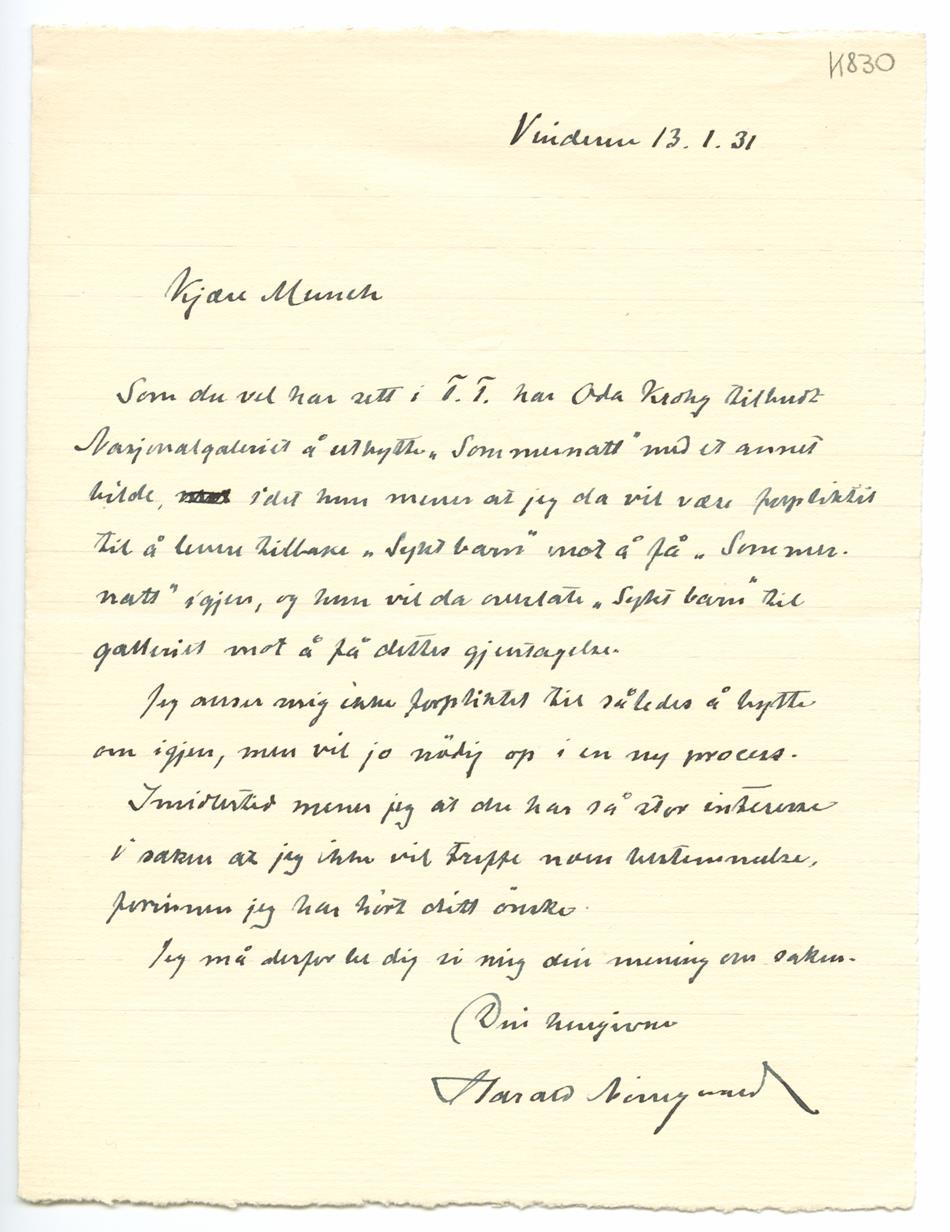 K830
Vinderen 13. 1. 31
Kjære Munch
Som du vel har sett i T. T. har Oda Krohg tilbudt
Nasjonalgaleriet å utbytte „Sommernatt" med et annet
bilde, idet hun mener at jeg da vil være forpliktet
til å levere tilbake „Sykt barn" mot å få „Sommer-
natt" igjen, og hun vil da overlate „Sykt barn" til
galleriet mot å få dettes gjentagelse.
Jeg anser mig ikke forpliktet til således å bytte
om igjen, men vil jo nödig op i en ny process.
Imidlertid mener jeg at du har så stor interesse
i saken at jeg ikke vil treffe noen bestemmelse,
forinnen jeg har hört ditt önske.
Jeg må derfor be dig si mig din mening om saken.
Din hengivne
Harald Nörregaard